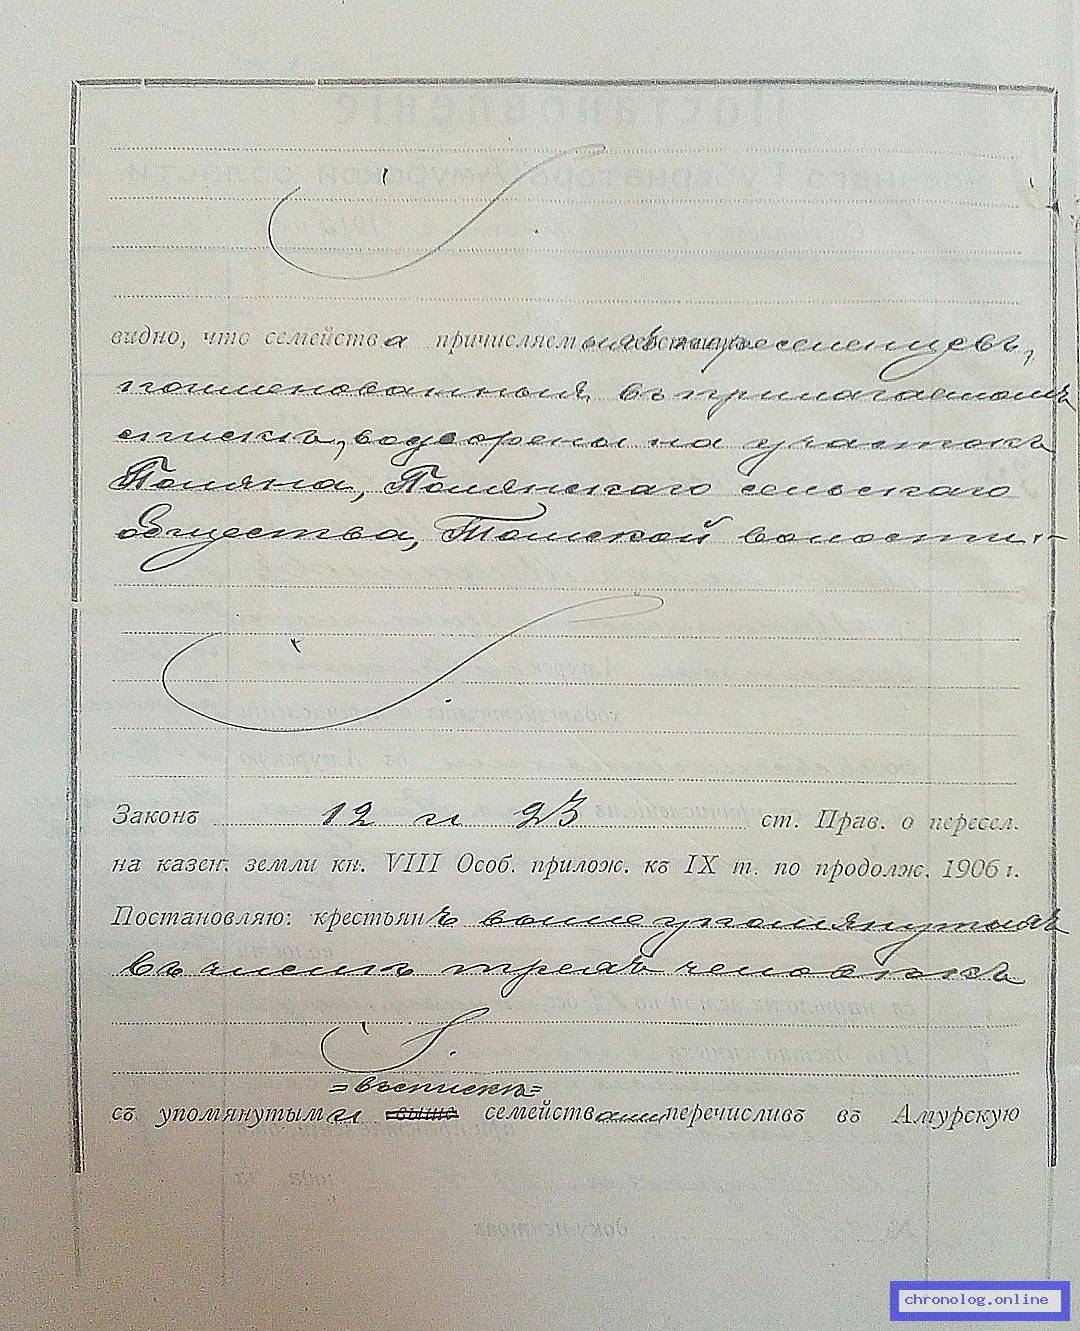 видно, что семейства причисляемыхъ переселенцевъ,
поименованныя въ прилагаемомъ
спискѣ, водворены на участокъ
Поляна, Полянскаго сельскаго
общества, Томской волости.
Законъ 12 и 23 ст. Прав. о пересел.
на казен. земли кн. VIII Особ. прилож. къ IX т. по продолж. 1906 г.
Постановляю: крестьянъ вышеупомянутыхъ
въ числѣ трехъ человѣкъ
=въ спискѣ=
съ упомянутыми выше семействами перечисливъ въ Амурскую
chronolog.online